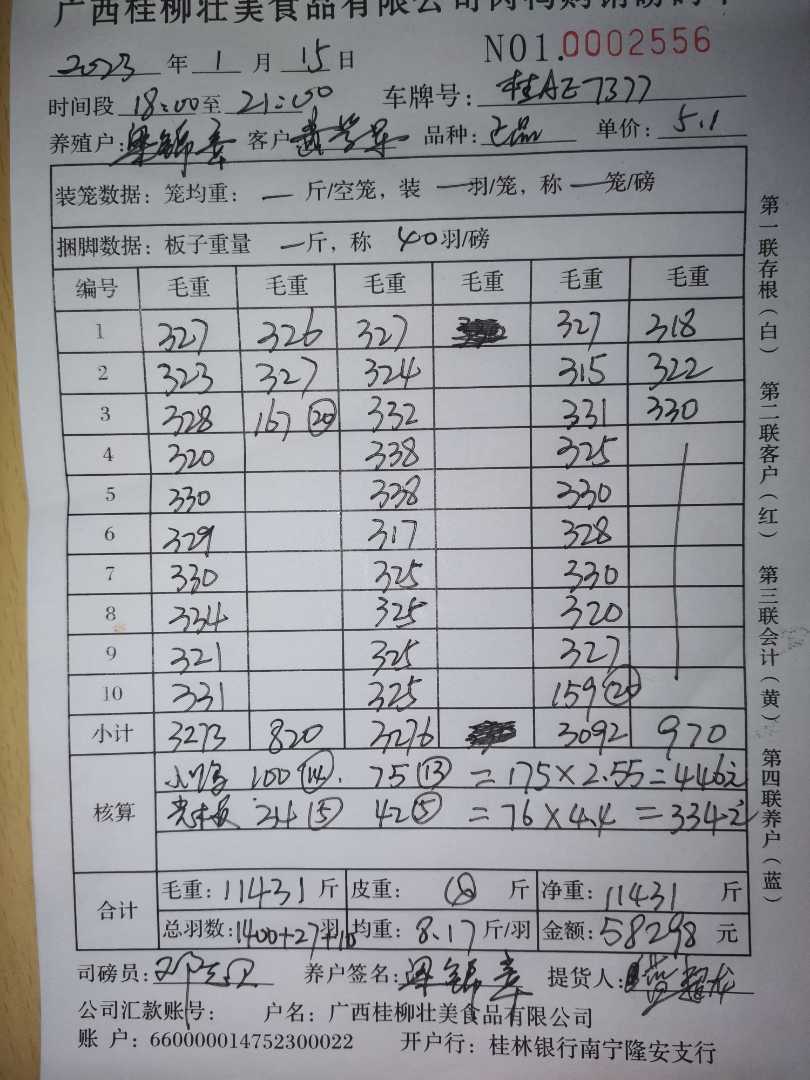 广西桂柳壮美食品有限公司肉鸭购销磅码单
NO1.0002556
2023 年 1 月 15 日
时间段 18:00 至 21:00 车牌号: 桂AE7377
养殖户: 梁锦章 客户 品种: 正品 单价: 5.1
装笼数据: 笼均重: — 斤/空笼, 装 — 羽/笼, 称 — 笼/磅
捆脚数据: 板子重量 — 斤, 称 40 羽/磅
编号 毛重 毛重 毛重 毛重 毛重 毛重
1 327 326 327 327 318
2 323 327 324 315 322
3 328 167 (20) 332 331 330
4 320 338 325
5 330 338 330
6 329 317 328
7 330 325 330
8 334 325 320
9 321 325 327
10 331 325 159 (20)
小计 3273 820 3276 3092 970
核算
100 (14). 75 (13) = 175 × 2.55 = 446元
34 (5) 42 (5) = 76 × 4.4 = 334元
合计
毛重: 11431 斤 皮重: 斤 净重: 11431 斤
总羽数: 1400+27+10 羽 均重: 8.17 斤/羽 金额: 58298 元
司磅员: 养户签名: 梁锦章 提货人:
公司汇款账号: 户名: 广西桂柳壮美食品有限公司
账 户: 660000014752300022 开户行: 桂林银行南宁隆安支行
第一联存根(白) 第二联客户(红) 第三联会计(黄) 第四联养户(蓝)